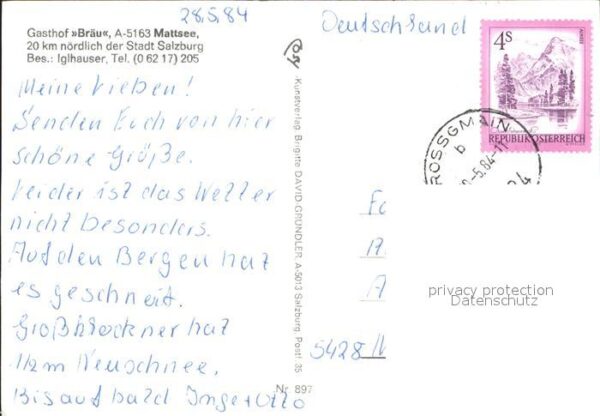 28.5.84
Gasthof »Bräu«, A-5163 Mattsee,
20 km nördlich der Stadt Salzburg
Bes.: Iglhauser, Tel. (0 62 17) 205
Meine Lieben!
Senden Euch von hier
schöne Grüße.
Leider ist das Wetter
nicht besonders.
Auf den Bergen hat
es geschneit.
Großglockner hat
1/2m Neuschnee.
Bis auf bald Inge + Otto
Kunstverlag Brigitte DAVID-GRÜNDLER, A-5013 Salzburg, Postf. 35
Nr. 897
Deutschland
4S
REPUBLIK ÖSTERREICH
ROSSGMAIN
b
-5.84-11
5428
privacy protection
Datenschutz